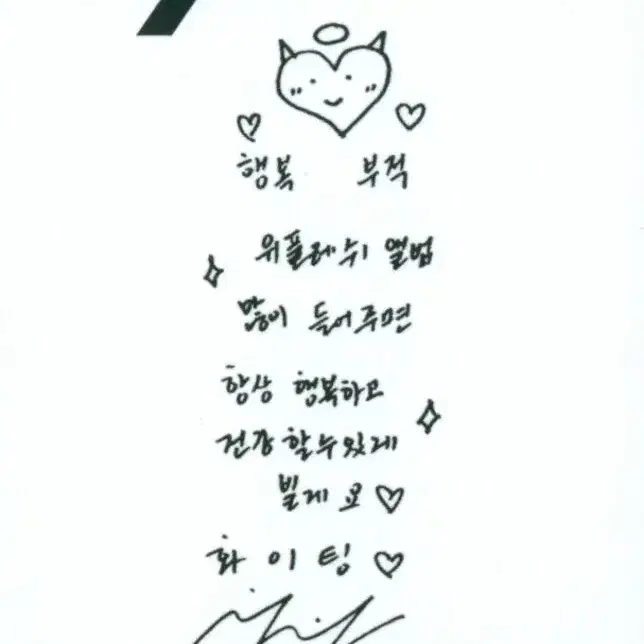 행복 부적
위플레쉬 앨범
많이 들어주면
항상 행복하고
건강할수있게
빌게요♡
화이팅♡